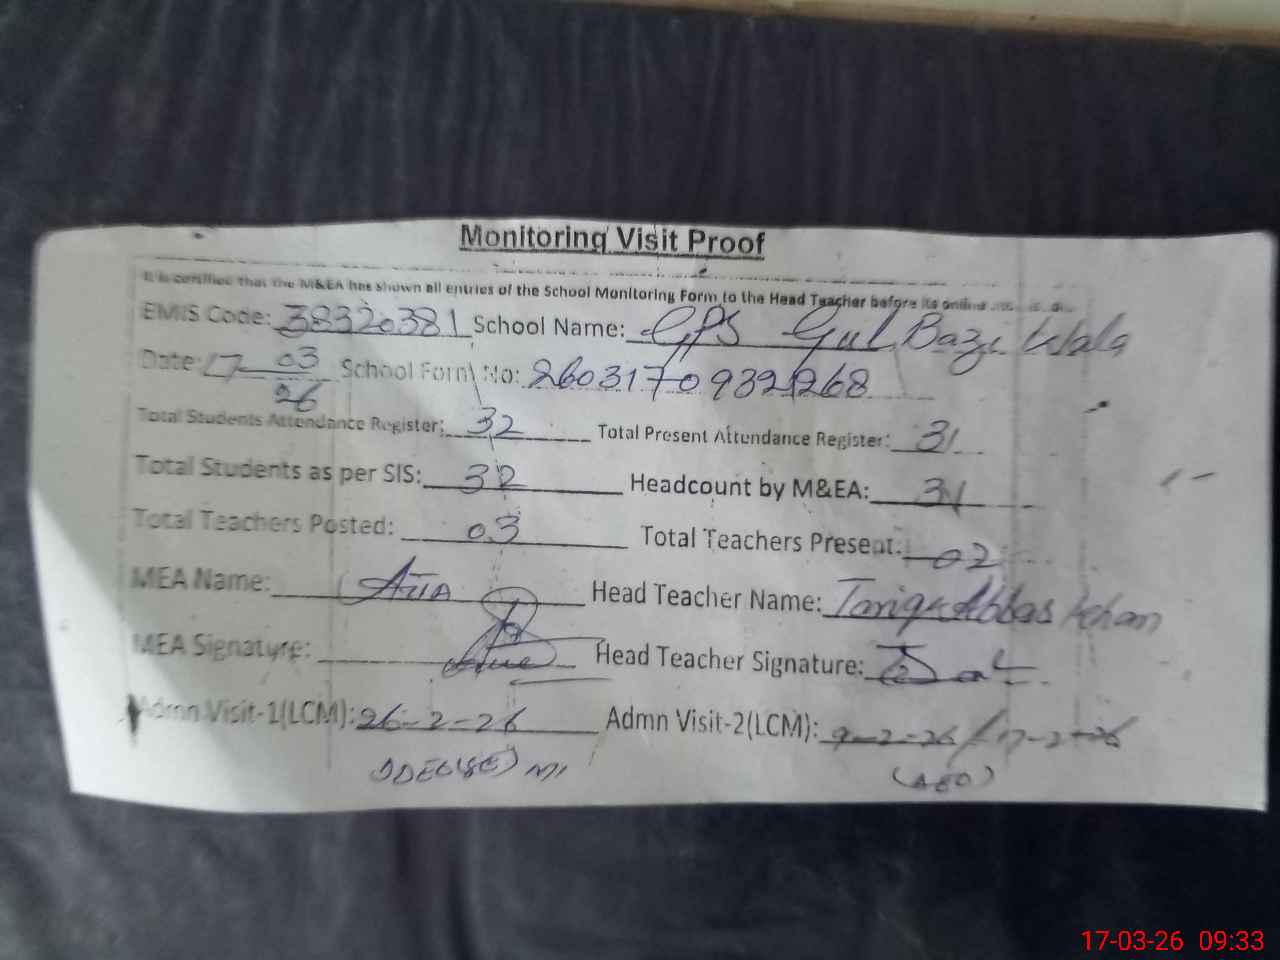 Monitoring Visit Proof
It is certified that the M&EA has shown all entries of the School Monitoring Form to the Head Teacher before its online
EMIS Code: 38320381 School Name: GPS Gul Bazi Wala
Date: 17-03-26 School Form No: 2603170932268
Total Students Attendance Register: 32 Total Present Attendance Register: 31
Total Students as per SIS: 32 Headcount by M&EA: 31
Total Teachers Posted: 03 Total Teachers Present: 02
MEA Name: Head Teacher Name: Tariq Abbas Khan
MEA Signature: Head Teacher Signature:
Admn Visit-1(LCM): 26-2-26 Admn Visit-2(LCM): 9-2-26 / 17-2-26
(AEO)
17-03-26 09:33